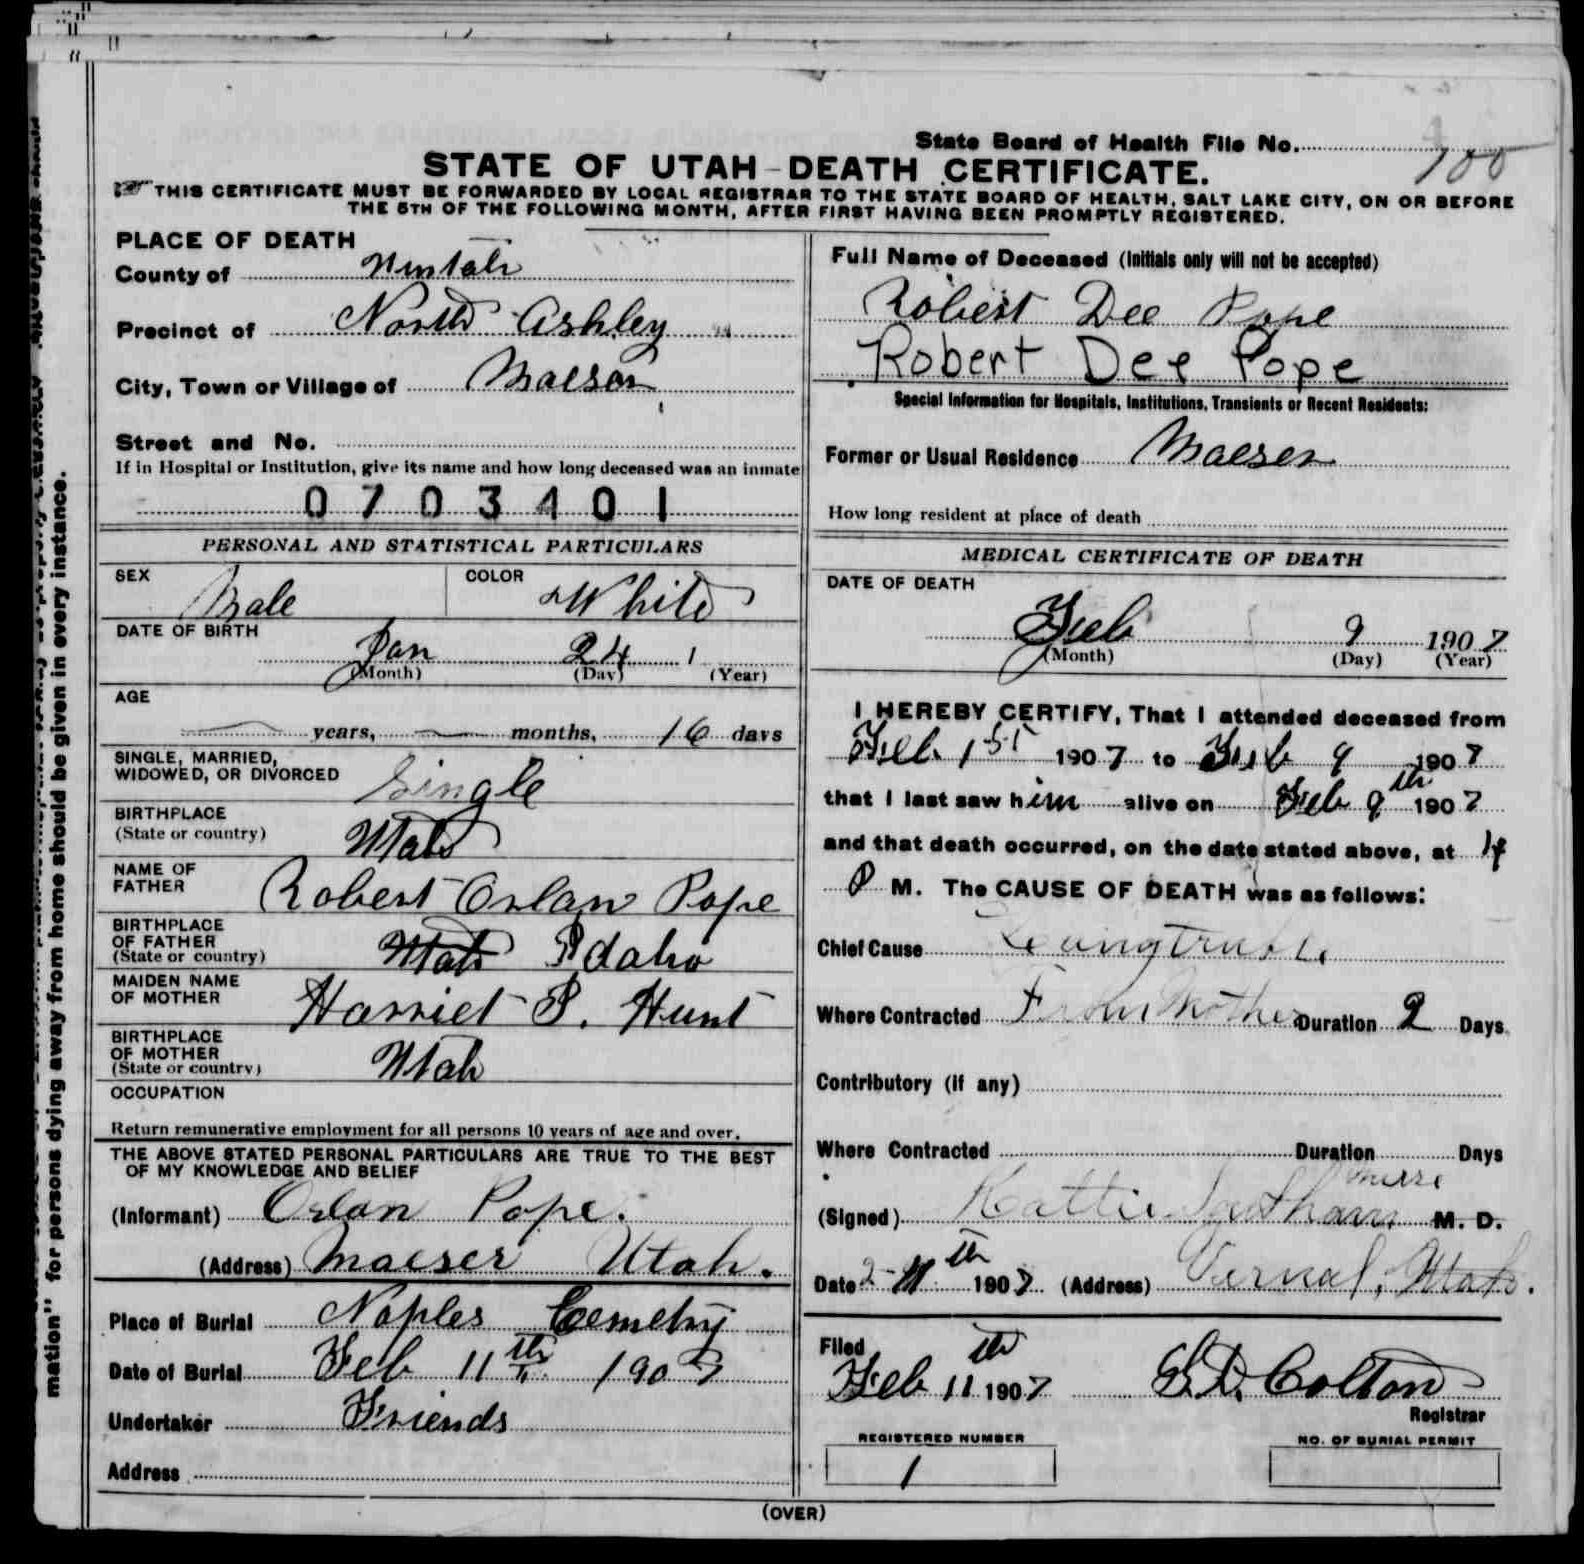 State Board of Health File No. 100
STATE OF UTAH-DEATH CERTIFICATE.
THIS CERTIFICATE MUST BE FORWARDED BY LOCAL REGISTRAR TO THE STATE BOARD OF HEALTH, SALT LAKE CITY, ON OR BEFORE
THE 5TH OF THE FOLLOWING MONTH, AFTER FIRST HAVING BEEN PROMPTLY REGISTERED.
PLACE OF DEATH
County of Uintah
Precinct of North Ashley
City, Town or Village of Maeser
Street and No.
If in Hospital or Institution, give its name and how long deceased was an inmate
0703401
PERSONAL AND STATISTICAL PARTICULARS
SEX Male COLOR White
DATE OF BIRTH
Jan 24 1
(Month) (Day) (Year)
AGE
years, months, 16 days
SINGLE, MARRIED,
WIDOWED, OR DIVORCED Single
BIRTHPLACE
(State or country) Utah
NAME OF
FATHER Robert Orlan Pope
BIRTHPLACE
OF FATHER
(State or country) Utah Idaho
MAIDEN NAME
OF MOTHER Harriet P. Hunt
BIRTHPLACE
OF MOTHER
(State or country) Utah
OCCUPATION
Return remunerative employment for all persons 10 years of age and over.
THE ABOVE STATED PERSONAL PARTICULARS ARE TRUE TO THE BEST
OF MY KNOWLEDGE AND BELIEF
(Informant) Orlan Pope.
(Address) Maeser Utah.
Place of Burial Naples Cemetry
Date of Burial Feb 11th 1907
Undertaker Friends
Address
Full Name of Deceased (Initials only will not be accepted)
Robert Dee Pope
Robert Dee Pope
Special Information for Hospitals, Institutions, Transients or Recent Residents:
Former or Usual Residence Maeser
How long resident at place of death
MEDICAL CERTIFICATE OF DEATH
DATE OF DEATH
Feb 9 1907
(Month) (Day) (Year)
I HEREBY CERTIFY, That I attended deceased from
Feb 1st 1907 to Feb 9 1907
that I last saw him alive on Feb 9th 1907
and that death occurred, on the date stated above, at 4
P M. The CAUSE OF DEATH was as follows:
Chief Cause Lung truble
Where Contracted From Mother Duration 2 Days
Contributory (if any)
Where Contracted Duration Days
nurse
(Signed) Hattie M. D.
Date 2-11th 1907 (Address) Vernal, Utah.
Filed
Feb 11th 1907 Colton
Registrar
REGISTERED NUMBER
1
NO. OF BURIAL PERMIT
(OVER)
mation" for persons dying away from home should be given in every instance.